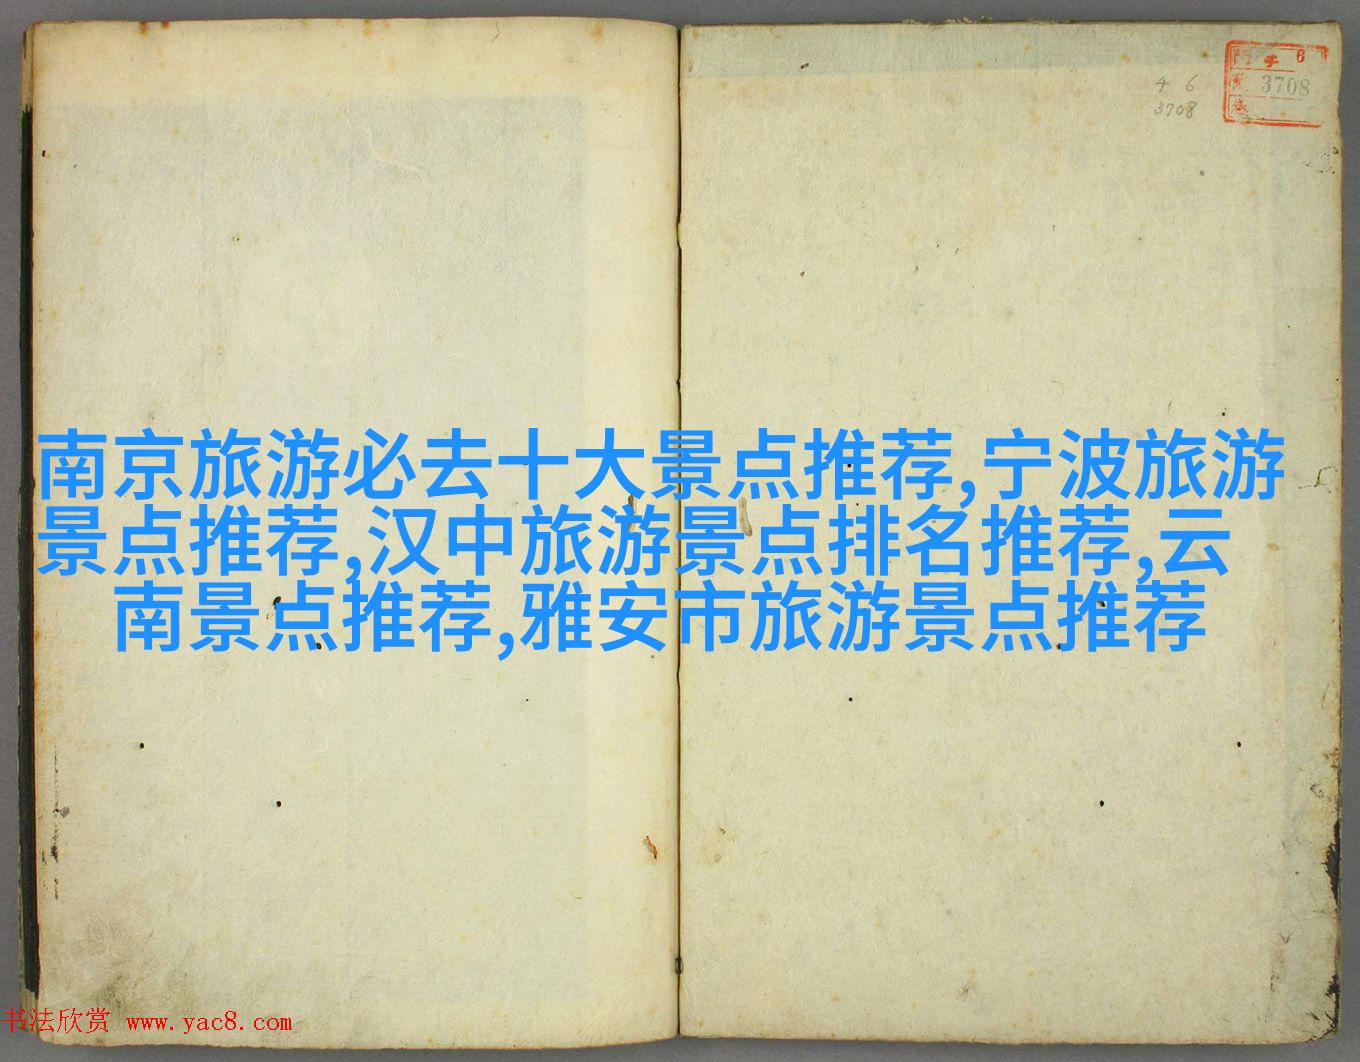 4 6
3708
6
3708
南京旅游必去十大景点推荐,宁波旅游
景点推荐,汉中旅游景点排名推荐,云
南景点推荐,雅安市旅游景点推荐
书法欣赏 www.yac8.com